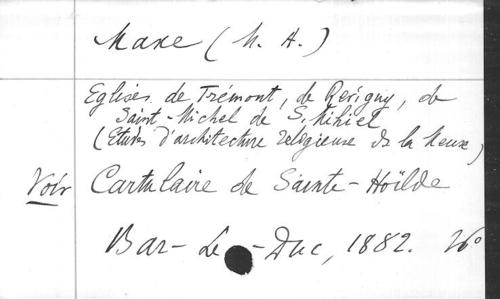 Maxe (M. A.)
Eglises de Trémont, de Revigny, de
Saint-Michel de St Mihiel
(Etudes d'architecture religieuse de la Meuse)
Voir Cartulaire de Sainte-Hoïlde
Bar-Le-Duc, 1882.